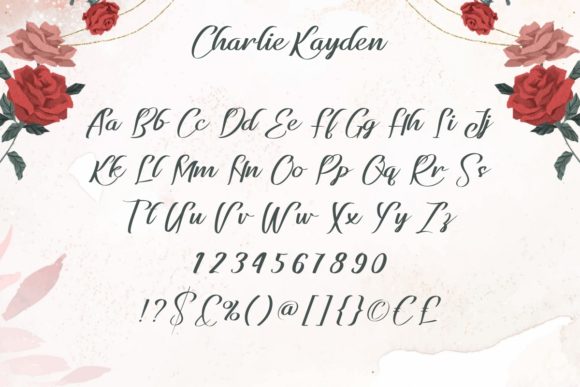 Charlie Kayden
Aa Bb Cc Dd Ee Ff Gg Hh Ii Jj
Kk Ll Mm Nn Oo Pp Qq Rr Ss
Tt Uu Vv Ww Xx Yy Zz
1234567890
!?$&%()@[]{}©€£